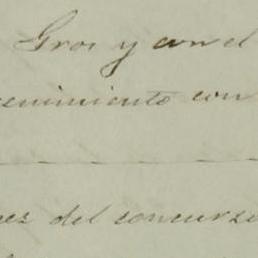 Gros y con el
cenimiento con
ces del concurso